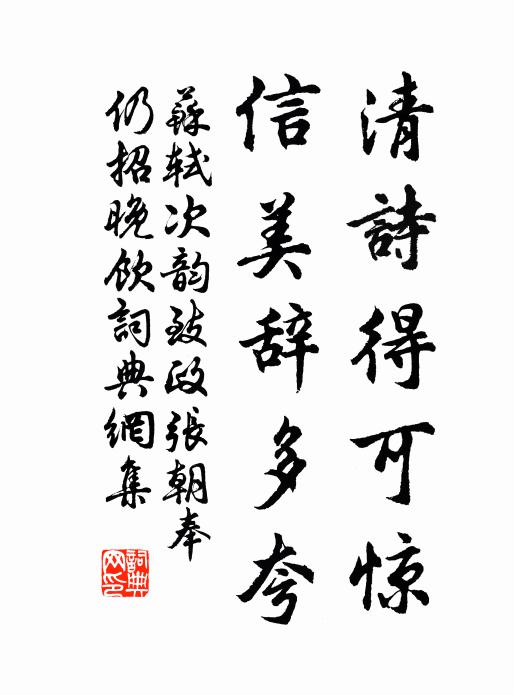 清詩得可惊
信美辞多夸
蘇軾次韵致政張朝奉
仍招晚飲詞典網集
詞典
网印